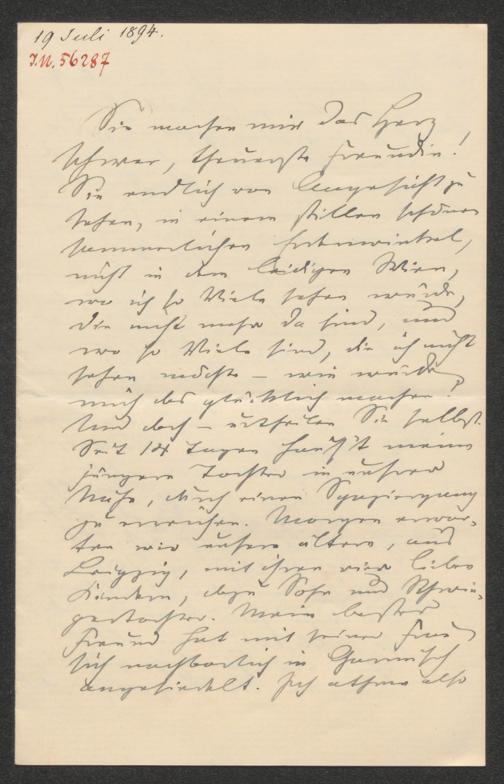 19 Juli 1894.
I.N. 56287
Sie machen mir das Herz
schwer, theuerste Freundin!
Sie endlich von Angesicht zu
sehen, in einem stillen schönen
sommerlichen Erdenwinkel,
nicht in dem leidigen Wien,
wo ich so Viele sehen würde,
die nicht mehr da sind, und
wo so Viele sind, die ich nicht
sehen möchte – wie würde
mich das glücklich machen!
Und doch – urtheilen Sie selbst.
Seit 14 Tagen haus't meine
jüngere Tochter in unserer
Nähe, durch einen Spaziergang
zu erreichen. Morgen erwar-
ten wir unsere ältere, aus
Leipzig, mit ihren vier lieben
Kindern, dazu Sohn und Schwie-
gertochter. Mein bester
Freund hat mit seiner Frau
sich nachbarlich in Garmisch
angesiedelt. Ich athme also